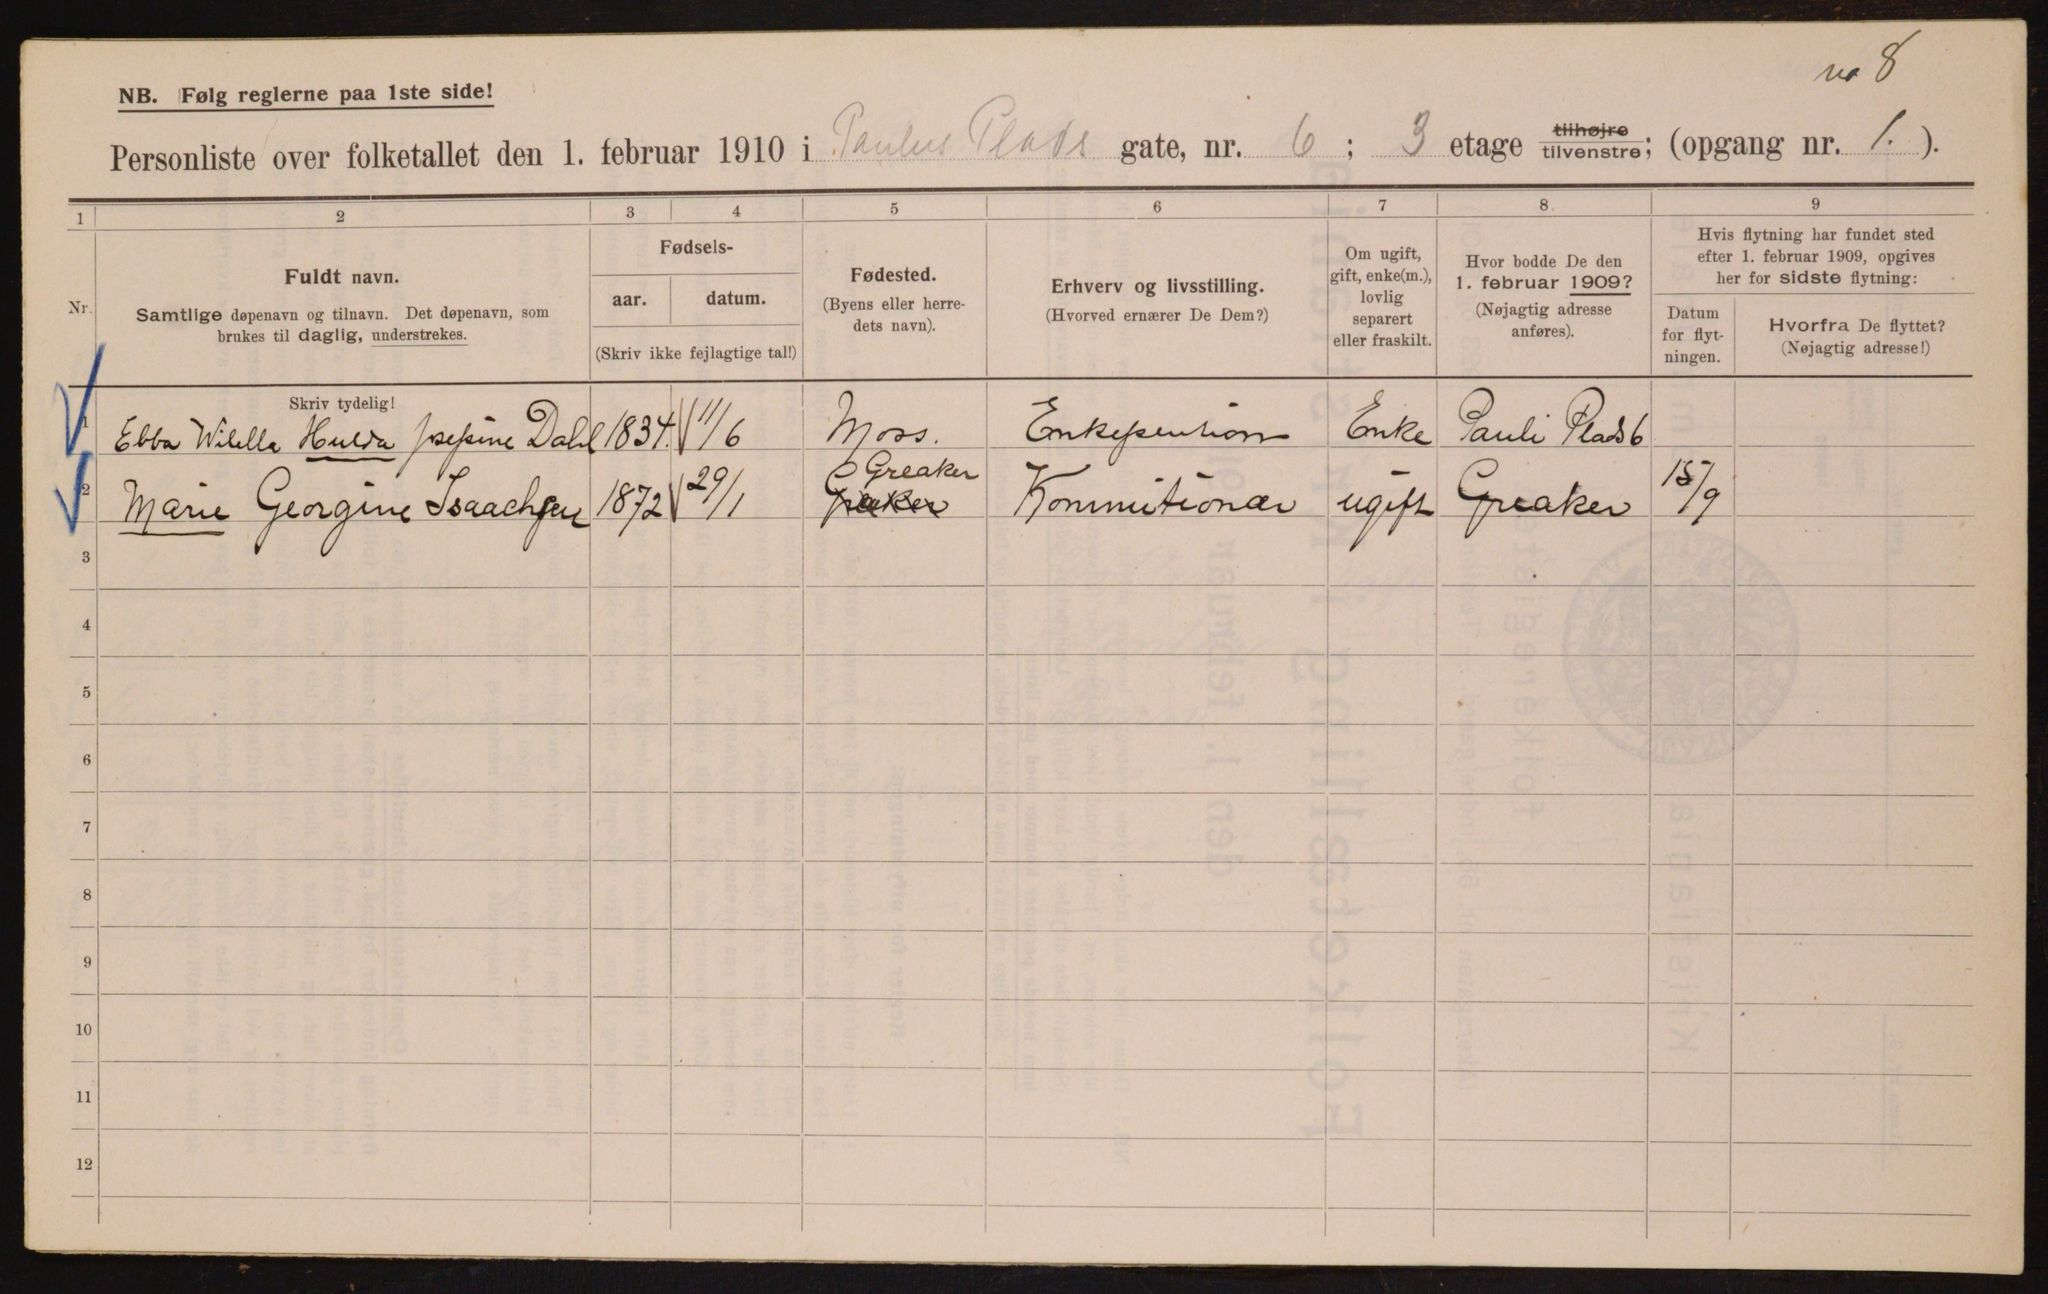 no 8
NB. Følg reglerne paa 1ste side!
Personliste over folketallet den 1. februar 1910 i Paulus Plads gate, nr. 6 ; 3 etage tilhøjre tilvenstre; (opgang nr. 1. ).
1 2 3 4 5 6 7 8 9
Nr.
Fuldt navn.
Samtlige døpenavn og tilnavn. Det døpenavn, som
brukes til daglig, understrekes.
Skriv tydelig!
Fødsels-
aar. datum.
(Skriv ikke fejlagtige tal!)
Fødested.
(Byens eller herre-
dets navn).
Erhverv og livsstilling.
(Hvorved ernærer De Dem?)
Om ugift,
gift, enke(m.),
lovlig
separert
eller fraskilt.
Hvor bodde De den
1. februar 1909?
(Nøjagtig adresse
anføres).
Hvis flytning har fundet sted
efter 1. februar 1909, opgives
her for sidste flytning:
Datum
for flyt-
ningen.
Hvorfra De flyttet?
(Nøjagtig adresse!)
1 Ebba Hulda Josefine Dahl 1834. 11/6 Moss. Enkepention Enke Pauli Plads 6
2 Marie Georgine Isaachsen 1872 29/1 Greaker Kommitionær ugift Greaker 15/9
3
4
5
6
7
8
9
10
11
12